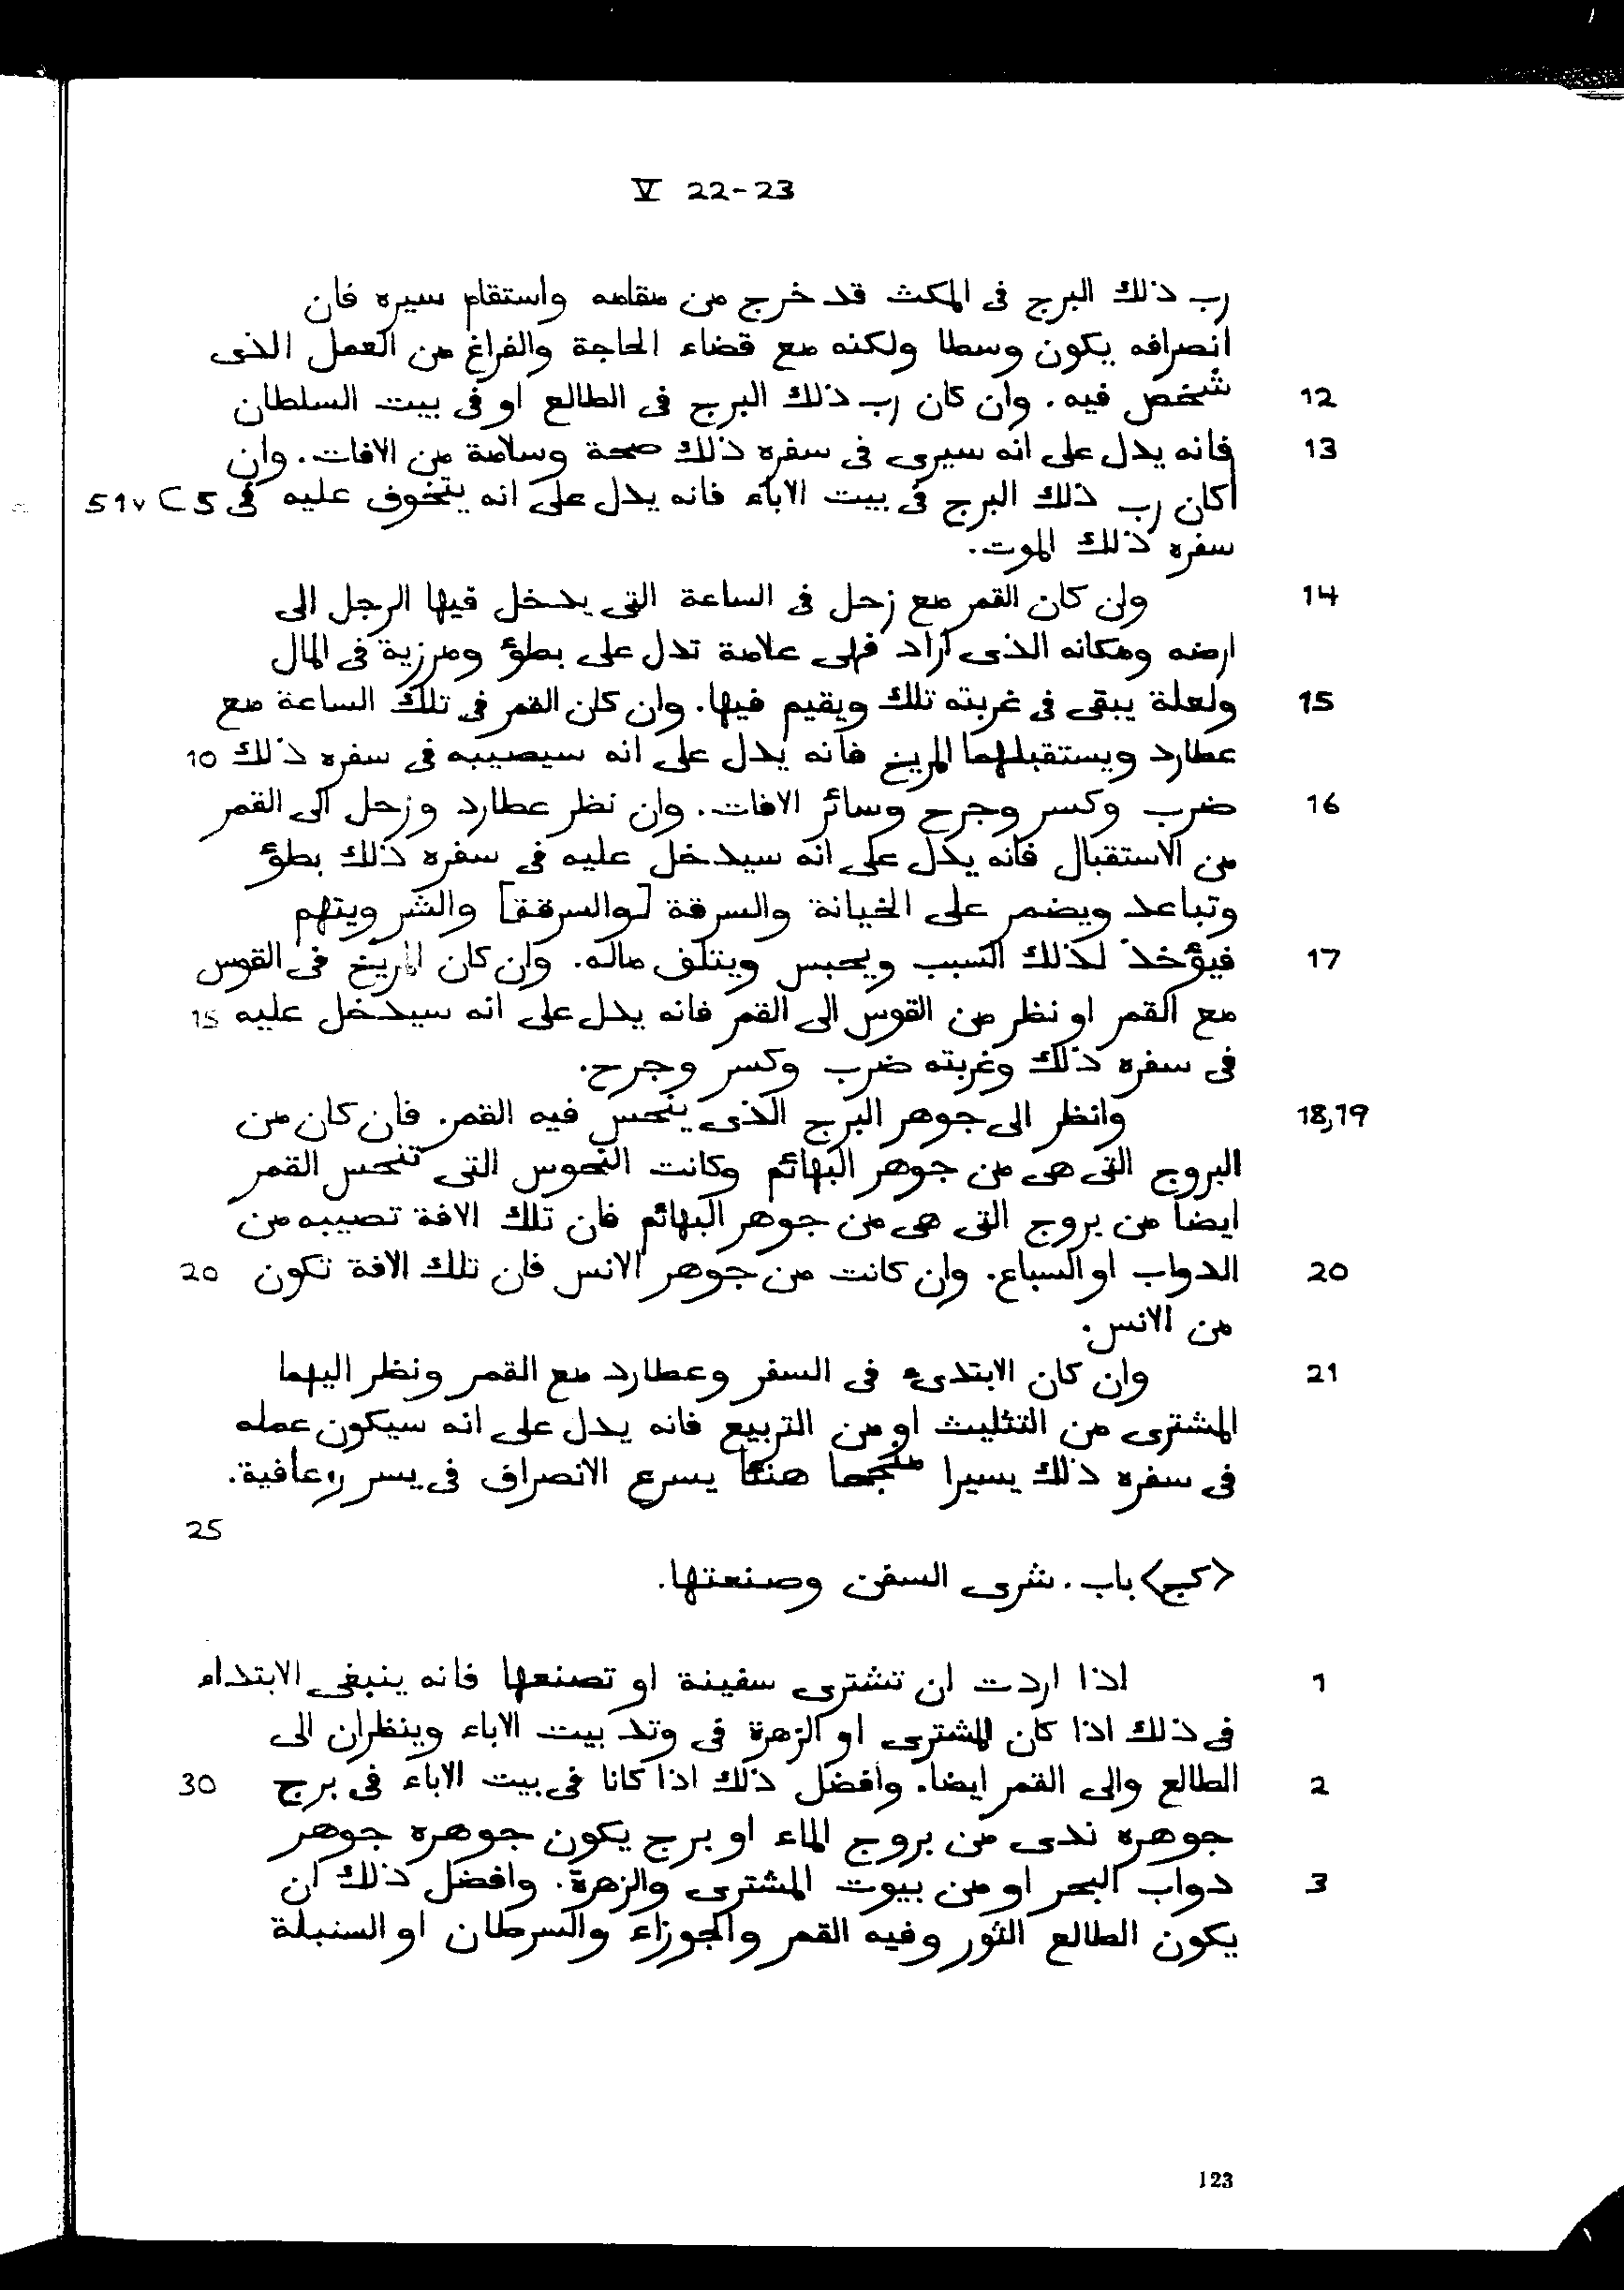 V 22-23
رب ذلك البرج فى المكث قد خرج من مقامه واستقام سيره فان
انصرافه يكون وسطا ولكنه مع قضاء الحاجة والفراغ من العمل الذى
12 شخص فيه. وان كان رب ذلك البرج فى الطالع او فى بيت السلطان
13 فانه يدل على انه سيرى فى سفره ذلك صحة وسلامة من الافات. وان
اكان رب ذلك البرج فى بيت الاباء فانه يدل على انه يتخوف عليه فى 5 51v C
سفره ذلك الموت.
14 وان كان القمر مع زحل فى الساعة التى يدخل فيها الرجل الى
ارضه ومكانه الذى اراد فهى علامة تدل على بطؤ ومرزية فى المال
15 ولعلة يبقى فى غربته تلك ويقيم فيها. وان كان القمر فى تلك الساعة مع
عطارد ويستقبلهما المريخ فانه يدل على انه سيصيبه فى سفره ذلك 10
16 ضرب وكسر وجرح وسائر الافات. وان نظر عطارد وزحل الى القمر
من الاستقبال فانه يدل على انه سيدخل عليه فى سفره ذلك بطؤ
وتباعد ويضمر على الخيانة والسرقة [والسرقة] والشر ويتهم
17 فيؤخذ لذلك السبب ويحبس ويتلف ماله. وان كان المريخ فى القوس
مع القمر او نظر من القوس الى القمر فانه يدل على انه سيدخل عليه 15
فى سفره ذلك وغربته ضرب وكسر وجرح.
18,19 وانظر الى جوهر البرج الذى ينحس فيه القمر. فان كان من
البروج التى هى من جوهر البهائم وكانت النحوس التى تنحس القمر
ايضا من بروج التى هى من جوهر البهائم فان تلك الافة تصيبه من
20 الدواب او السباع. وان كانت من جوهر الانس فان تلك الافة تكون 20
من الانس.
21 وان كان الابتدىء فى السفر وعطارد مع القمر ونظر اليهما
المشترى من التثليث او من التربيع فانه يدل على انه سيكون عمله
فى سفره ذلك يسيرا منجحا هنئا يسرع الانصراف فى يسر وعافية.
25
<كج> باب. شرى السفن وصنعتها.
1 اذا اردت ان تشترى سفينة او تصنعها فانه ينبغى الابتداء
فى ذلك اذا كان المشترى او الزهرة فى وتد بيت الاباء وينظران الى
2 الطالع والى القمر ايضا. وافضل ذلك اذا كانا فى بيت الاباء فى برج 30
جوهره ندى من بروج الماء او برج يكون جوهره جوهر
3 دواب البحر او من بيوت المشترى والزهرة. وافضل ذلك ان
يكون الطالع الثور وفيه القمر والجوزاء والسرطان او السنبلة
123